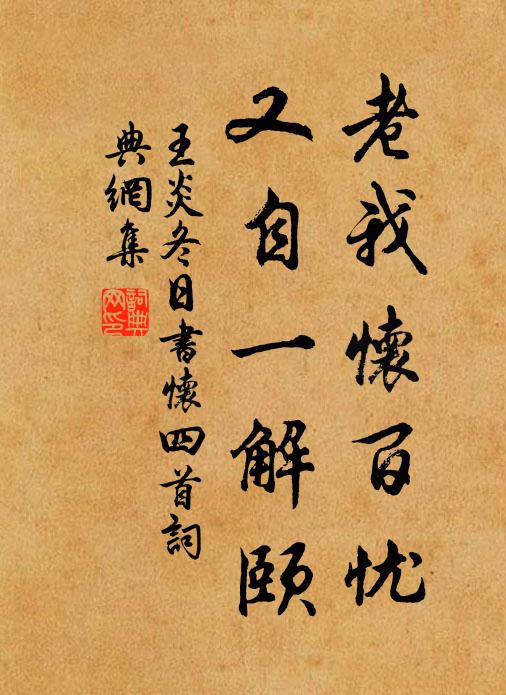 老我懷百忧
又自一解頤
王炎冬日書懷四首詞
典網集
詞典
网印